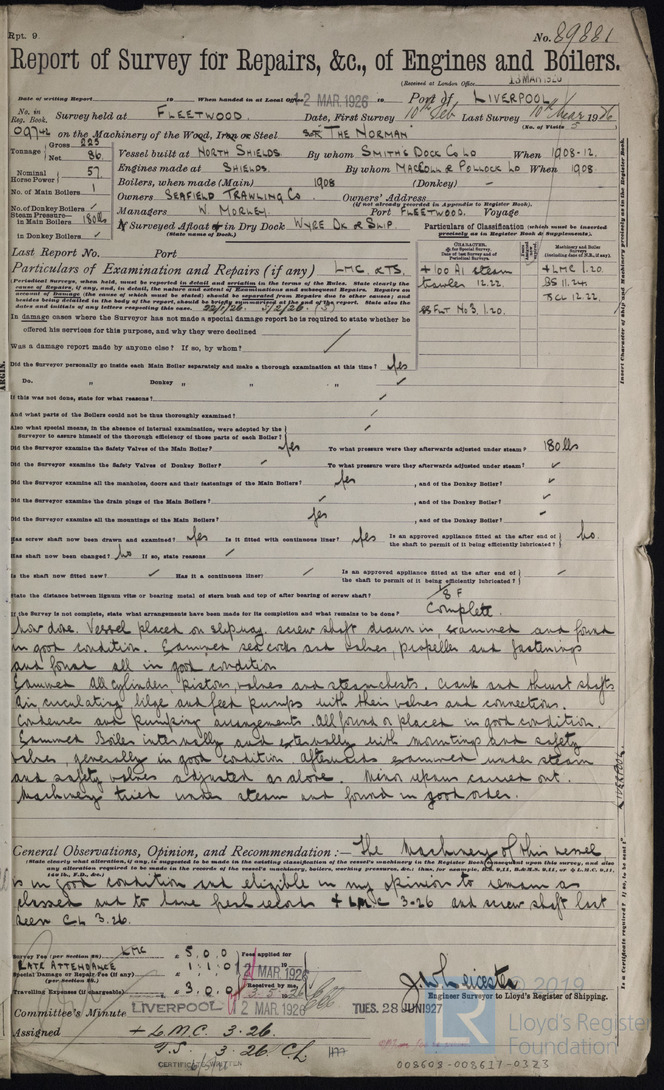 Rpt. 9.
No. 89881
Report of Survey for Repairs, &c., of Engines and Boilers.
(Received at London Office 13 MAR 1926
Date of writing Report 19 When handed in at Local Office 12 MAR. 1926 19 Port of LIVERPOOL
No. in Reg. Book. Survey held at FLEETWOOD. Date, First Survey 10th Feb Last Survey 10th Mar 1926
(No. of Visits 5
on the Machinery of the Wood, Iron or Steel "THE NORMAN"
Tonnage Gross 225
Net 86.
Vessel built at NORTH SHIELDS. By whom SMITHS DOCK CO LO When 1908-12.
Nominal Horse Power 57.
Engines made at SHIELDS. By whom MACCOLL & POLLOCK LO When 1908.
No. of Main Boilers 1
Boilers, when made (Main) 1908 (Donkey) -
Owners SEAFIELD TRAWLING CO Owners' Address
(If not already recorded in Appendix to Register Book.)
No. of Donkey Boilers
Managers W. MORLEY. Port FLEETWOOD. Voyage
Steam Pressure in Main Boilers 180 lbs
in Donkey Boilers
If Surveyed Afloat or in Dry Dock WYRE DK OR SLIP.
(State name of Dock.)
Particulars of Classification (which must be inserted precisely as in Register Book & Supplements).
Last Report No. Port
Particulars of Examination and Repairs (if any) LMC. & TS.
+ 100 A1 steam
trawler 12.22.
SS Fwt No 3. 1.20.
+ LMC 1.20.
BS 11.24
TS CL 12.22.
In damage cases where the Surveyor has not made a special damage report he is required to state whether he
offered his services for this purpose, and why they were declined
Was a damage report made by anyone else? If so, by whom?
Did the Surveyor personally go inside each Main Boiler separately and make a thorough examination at this time? Yes
Do. " Donkey " " "
If this was not done, state for what reasons?
And what parts of the Boilers could not be thoroughly examined?
Also what special means, in the absence of internal examination, were adopted by the
Surveyor to assure himself of the thorough efficiency of those parts of each Boiler?
Did the Surveyor examine the Safety Valves of the Main Boiler? Yes To what pressure were they afterwards adjusted under steam? 180 lbs
Did the Surveyor examine the Safety Valves of Donkey Boiler? To what pressure were they afterwards adjusted under steam?
Did the Surveyor examine all the manholes, doors and their fastenings of the Main Boilers? Yes , and of the Donkey Boiler?
Did the Surveyor examine the drain plugs of the Main Boilers? , and of the Donkey Boiler?
Did the Surveyor examine all the mountings of the Main Boilers? Yes , and of the Donkey Boiler?
Has screw shaft now been drawn and examined? Yes Is it fitted with continuous liner? Yes Is an approved appliance fitted at the after end of the shaft to permit of it being efficiently lubricated? No.
Has shaft now been changed? No If so, state reasons
Is the shaft now fitted new? Has it a continuous liner? Is an approved appliance fitted at the after end of the shaft to permit of it being efficiently lubricated?
State the distance between lignum vitæ or bearing metal of stern bush and top of after bearing of screw shaft?
If the Survey is not complete, state what arrangements have been made for its completion and what remains to be done? Complete.
Now done. Vessel placed on slipway, screw shaft drawn in, examined and found
in good condition. Examined sea cocks and valves, propeller and fastenings
and found all in good condition
Examined All cylinders, pistons, valves and steamchests. Crank and thrust shafts
Air, circulating bilge and feed pumps with their valves and connections.
Condenser and pumping arrangements. All found or placed in good condition.
Examined Boiler internally and externally with mountings and safety
valves, generally in good condition. Afterwards examined under steam
and safety valves adjusted as above. Minor repairs carried out.
Machinery tried under steam and found in good order.
General Observations, Opinion, and Recommendation:— The Machinery of this vessel
is in good condition and eligible in my opinion to remain as
classed and to have fresh record + LMC 3.26 and screw shaft last
seen CL 3.26.
Survey Fee (per Section 28) LMC £ 5.0.0 Fees applied for
LATE ATTENDANCE £ 1.1.0 2 MAR. 1926
Special Damage or Repair Fee (if any) (per Section 28.)
Travelling Expenses (if chargeable) £ 3.0.0 Received by me,
J. W. Leicester
Engineer Surveyor to Lloyd's Register of Shipping.
Committee's Minute LIVERPOOL 2 MAR 1926 TUES. 28 JUN 1927
Assigned + L.M.C. 3.26.
T.S. 3.26. CL
CERTIFICATE WRITTEN
© 2019
Lloyd's Register
Foundation
008608-008617-0323